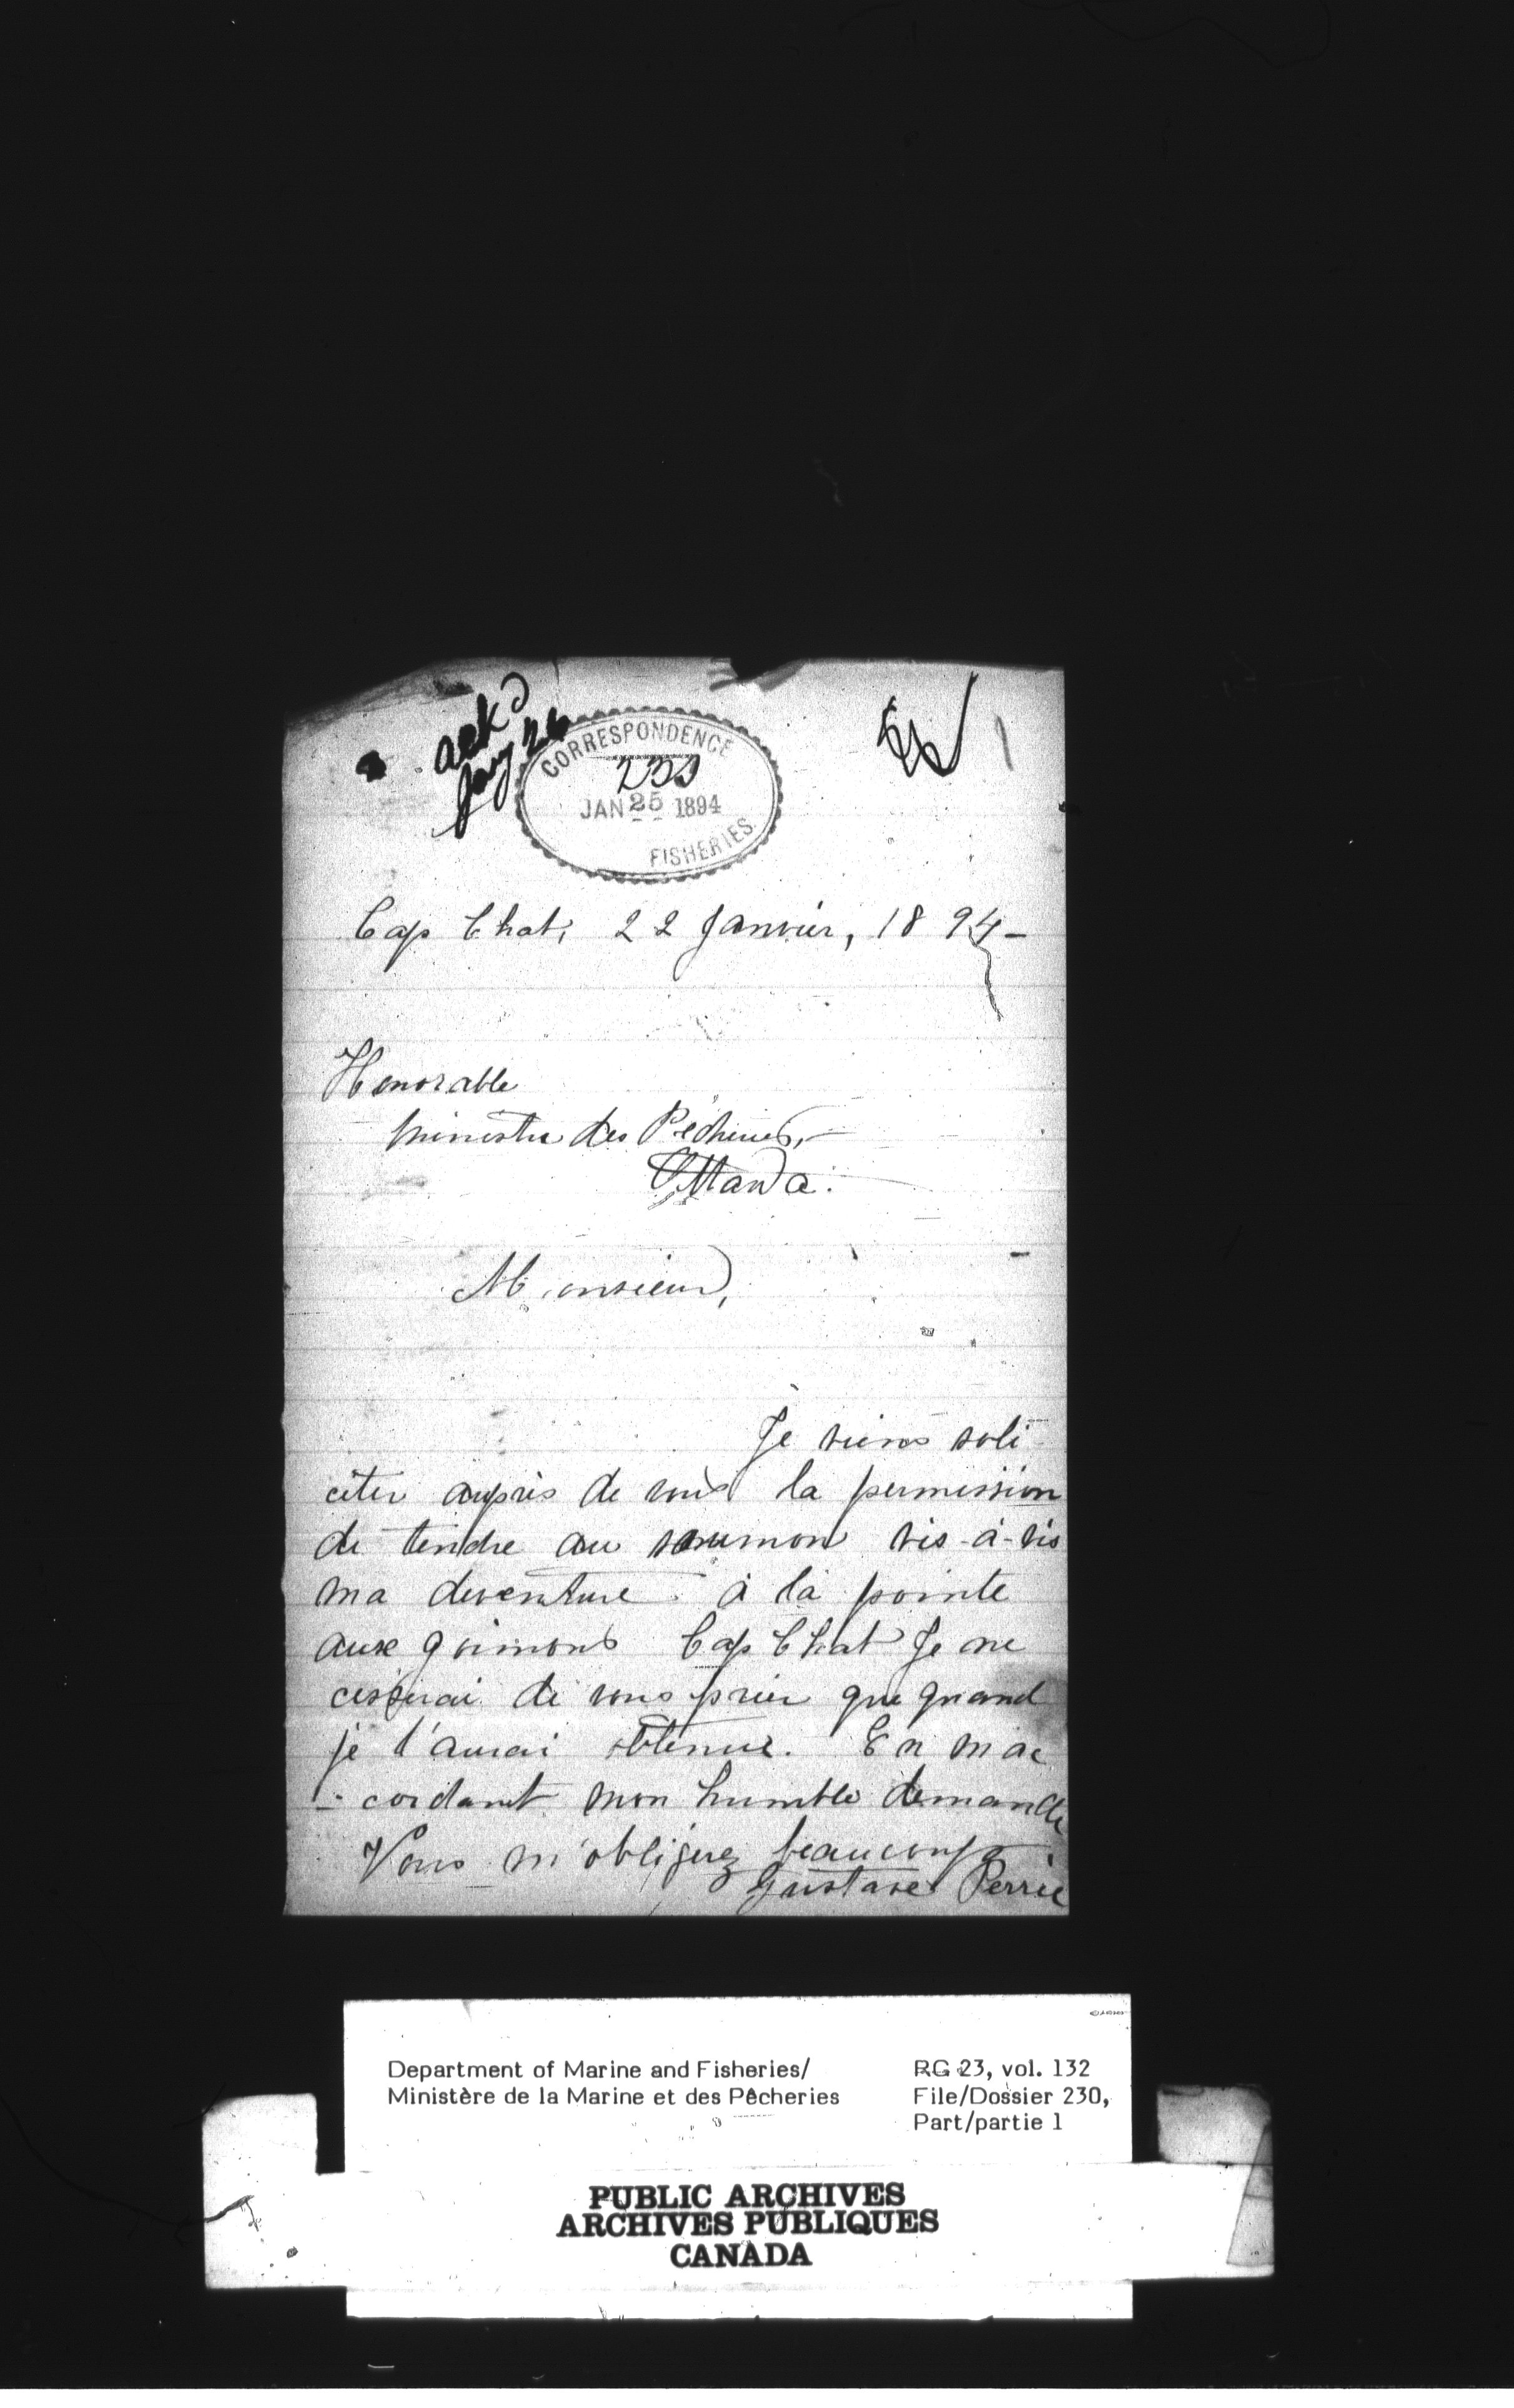 ackd
Jany 26
CORRESPONDENCE
JAN 25 1894
FISHERIES
Cap Chat, 22 Janvier, 1894-
Honorable
Ministre des Pêcheries,
Ottawa.
Monsieur,
Je viens soli
citer auprès de vous la permission
de tendre au saumon vis-à-vis
ma deventure à la pointe
aux goimons Cap Chat Je ne
cesserai de vous prier que quand
je l'aurai obtenue. En m'ac
-cordant mon humble demande
Vous m'obligerez beaucoup
Gustave Perrée
Department of Marine and Fisheries/
Ministère de la Marine et des Pêcheries
RG 23, vol. 132
File/Dossier 230,
Part/partie 1
PUBLIC ARCHIVES
ARCHIVES PUBLIQUES
CANADA